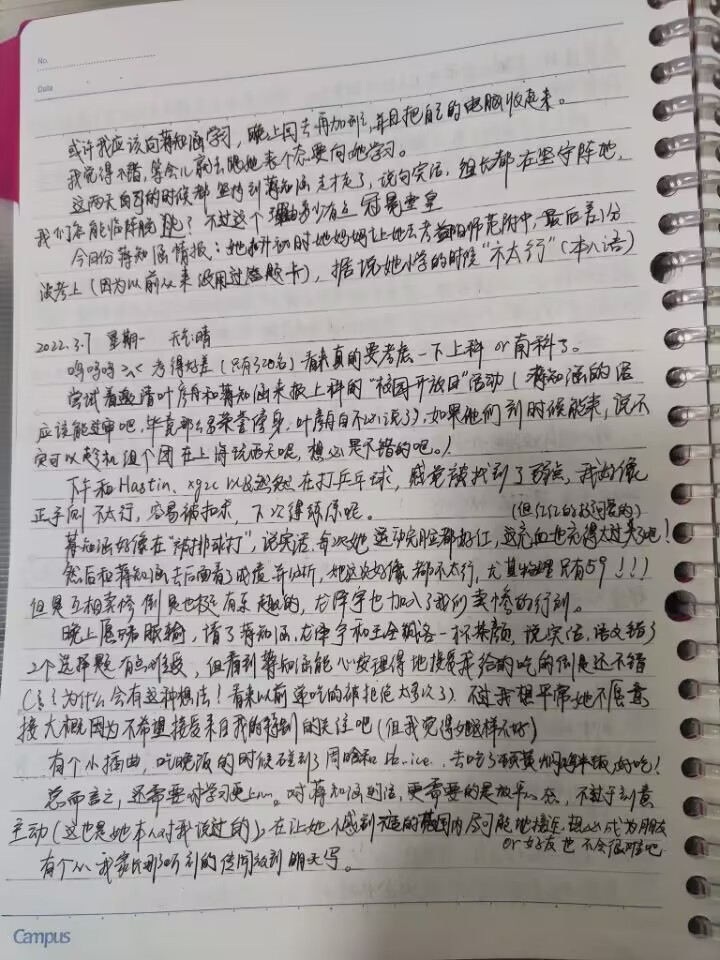 No.
Date
或许我应该向蒋知涵学习，晚上回去再加到，并且把自己的电脑收起来。
我觉得不错，等会儿就去跟她表个态要向她学习。
这两天自习的时候都坚持到蒋知涵走才走了，说句实话，组长都在坚守阵地，
我们怎能临阵脱逃？不过这个理由多少有点冠冕堂皇
今日份蒋知涵情报：她小升初时她妈妈让她去考师范附中，最后差1分
没考上（因为以前从来没用过答题卡），据说她小学的时候“不太行”（本人语）
2022.3.7 星期一 天气:晴
呜呜呜 >_< 考得好差（只有320名）看来真的要考虑一下上科 or 南科了。
尝试着邀请叶彦舟和蒋知涵来报上科的“校园开放日”活动（蒋知涵的话
应该能过审吧，毕竟那么多荣誉傍身，叶彦舟自不必说了），如果他们到时候能来，说不
定可以趁机组个团在上海玩两天呢，想必是不错的吧。）
下午和Hastin、xgzc 以及 在打乒乓球，感觉被找到了弱点，我好像
正手侧不太行，容易被扣求，下次得练练呢。
（但红红的好可爱的）
蒋知涵好像在“被排球打”，说实话，每次她运动完脸都好红，这充血也充得太过头了吧！
然后和蒋知涵去后面看了成绩并分析，她这次好像都不太行，尤其物理只有59！！！
但是互相卖惨倒是也挺有乐趣的，龙泽宇也加入了我们卖惨的行列。
晚上愿赌服输，请了蒋知涵、龙泽宇和王全 各一杯茶颜，说实话，语文错了
2个选择题有点难绷，但看到蒋知涵能心安理得地接受我给的吃的倒是还不错
（ 为什么会有这种想法！看来以前递吃的被拒绝太多次了）不过我想平常她不愿意
接大概因为不希望接受来自我的特别的关注吧（但我觉得她这样不好）
有个小插曲，吃晚饭的时候碰到了周 和 ，去吃了 黄焖鸡米饭，好吃！
总而言之，还需要对学习更上心。对蒋知涵的话，更需要的是放平心态，不过于刻意
主动（这也是她本人对我说过的），在让她不感到 的范围内尽可能地接近，想必成为朋友
or 好友也不会很难吧
有个从我 那听到的传闻放到明天写。
Campus